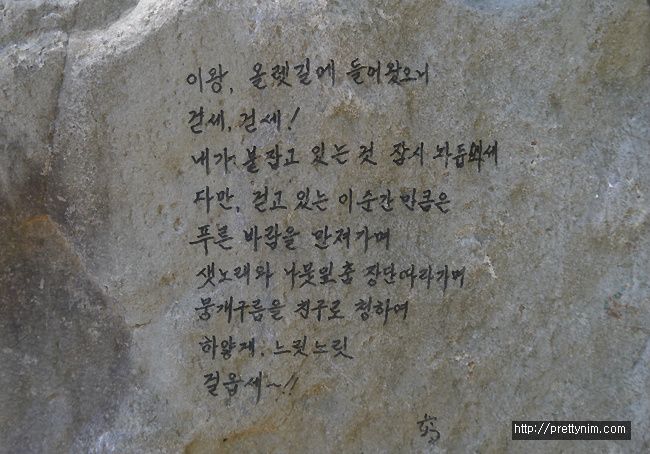 이왕, 올렛길에 들어왔으니
걷세, 걷세!
내가 붙잡고 있는 것 잠시 놔둡세
다만, 걷고 있는 이순간 만큼은
푸른 바람을 만져가며
샛노래와 나뭇잎춤 장단따라가며
뭉개구름을 친구로 청하여
하얗게, 느릿느릿
걸읍세~!!
http://prettynim.com